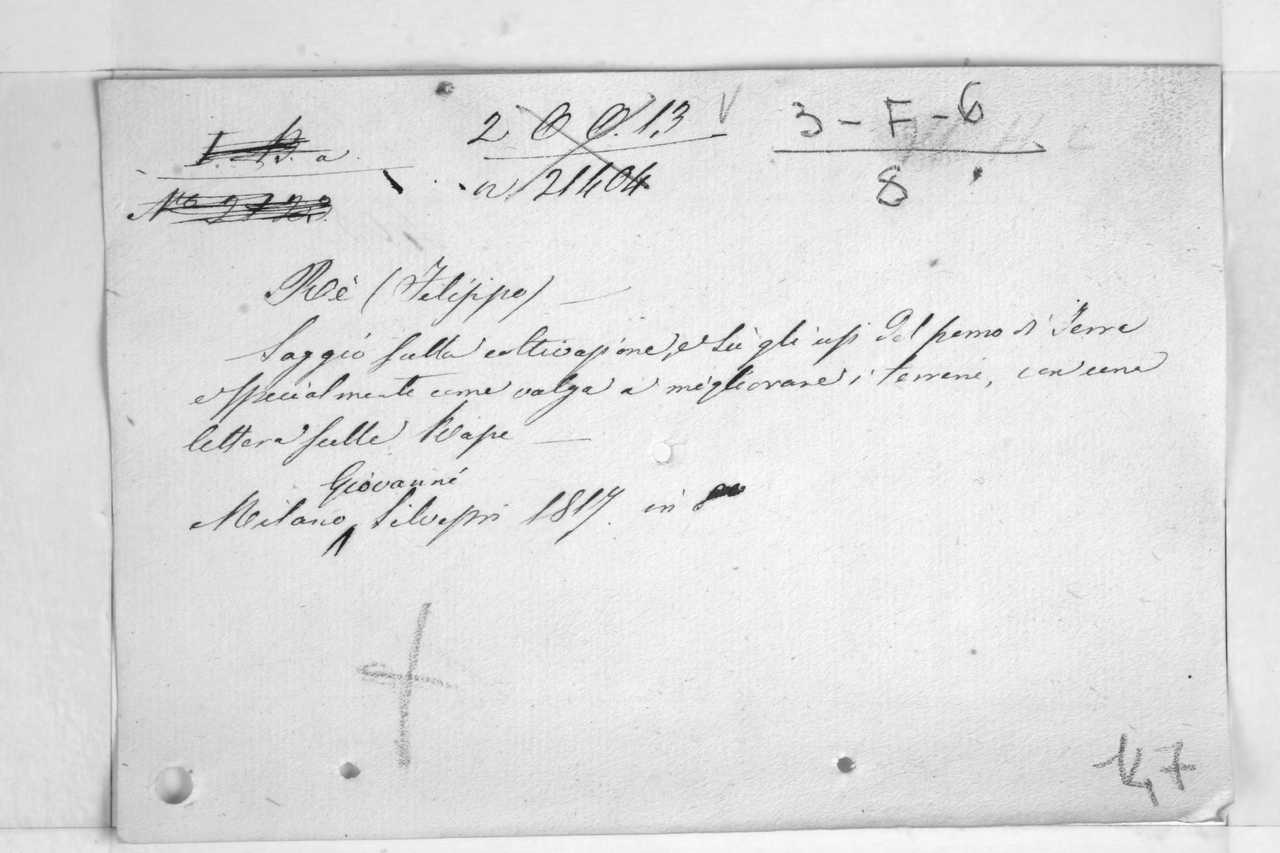 I. B. a.
No 2723
2 O O. 13 V
n 21404
3 - F - 6
8
Rè (Filippo) —
Saggio sulla coltivazione, e su gli usi del pomo di Terra
especialmente come valga a migliorare i terreni, con una
lettera sulle Rape —
Giovanni
Milano Silvestri 1817. in 8
47